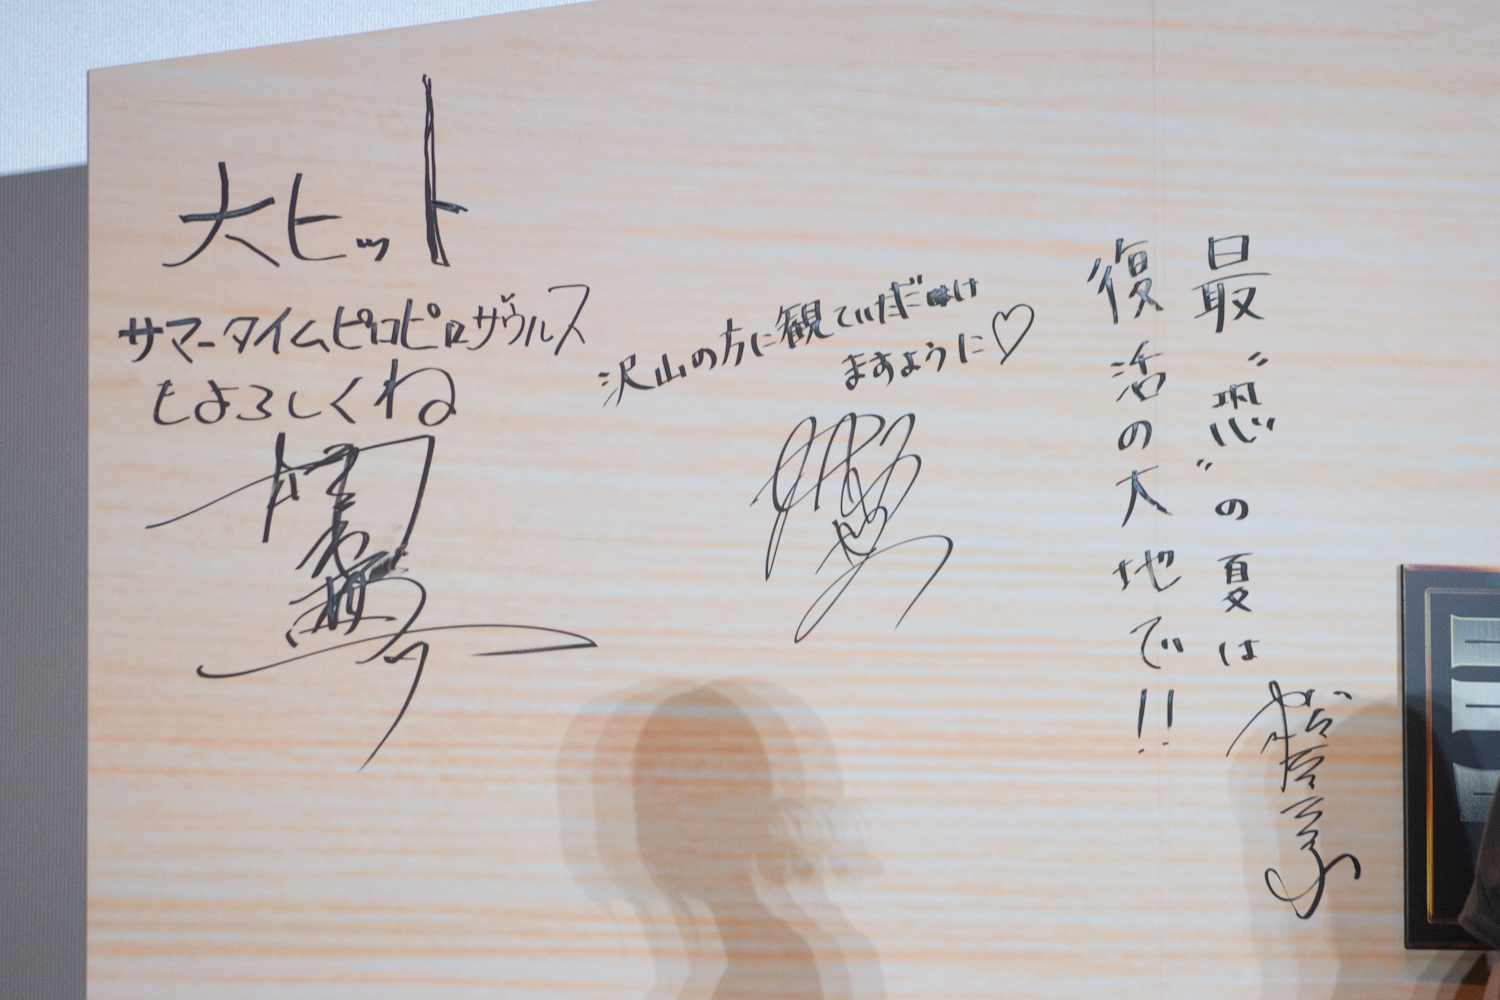 大ヒット
サマータイムピロピロザウルス
もよろしくね
沢山の方に観ていただけ
ますように♡
最"恐"の夏は
復活の大地で!!